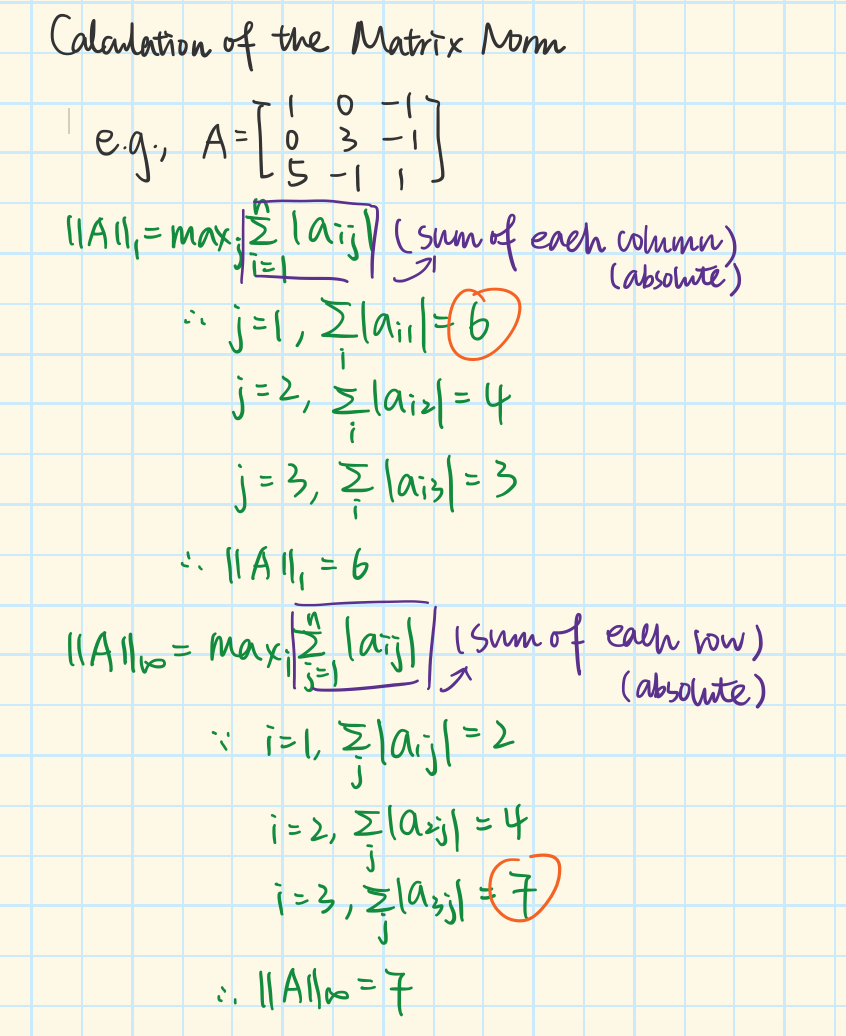 Calculation of the Matrix Norm
e.g., A = [ 1 0 -1
0 3 -1
5 -1 1 ]
||A||₁ = max_j Σ_{i=1}^{n} |a_{ij}| (sum of each column)
(absolute)
∴ j=1, Σ_i |a_{i1}| = 6
j=2, Σ_i |a_{i2}| = 4
j=3, Σ_i |a_{i3}| = 3
∴ ||A||₁ = 6
||A||_∞ = max_i Σ_{j=1}^{n} |a_{ij}| (sum of each row)
(absolute)
∵ i=1, Σ_j |a_{1j}| = 2
i=2, Σ_j |a_{2j}| = 4
i=3, Σ_j |a_{3j}| = 7
∴ ||A||_∞ = 7